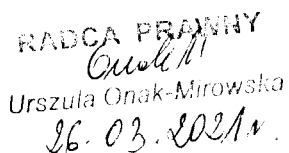 RADCA PRAWNY
Urszula Onak-Mirowska
26.03.2021r.